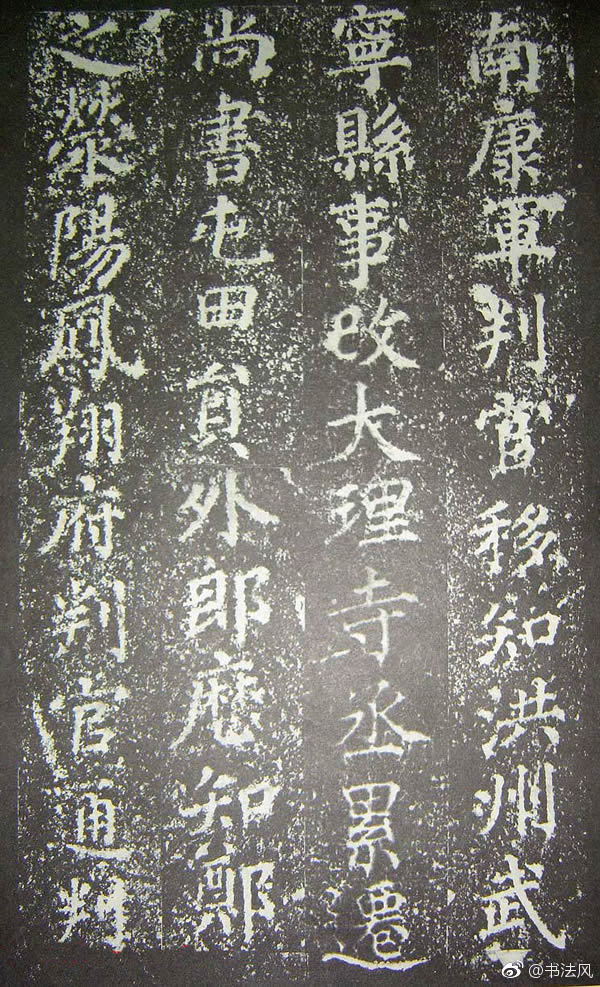 南康軍判官移知洪州武
寧縣事改大理寺丞累遷
尚書屯田員外郎歷知鄭
之滎陽鳳翔府判官通判
@书法风